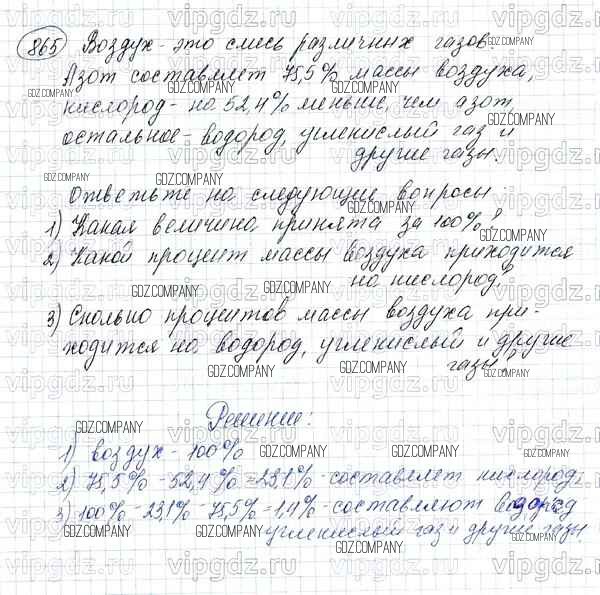 865) Воздух - это смесь различных газов.
Азот составляет 75,5% массы воздуха,
кислород - на 52,4% меньше, чем азот,
остальное - водород, углекислый газ и
другие газы.
Ответьте на следующие вопросы:
1) Какая величина принята за 100%?
2) Какой процент массы воздуха приходится
на кислород?
3) Сколько процентов массы воздуха при-
ходится на водород, углекислый и другие
газы?
Решение:
1) воздух - 100%
2) 75,5% - 52,4% = 23,1% - составляет кислород
3) 100% - 23,1% - 75,5% = 1,4% - составляют водород
углекислый газ и другие газы.